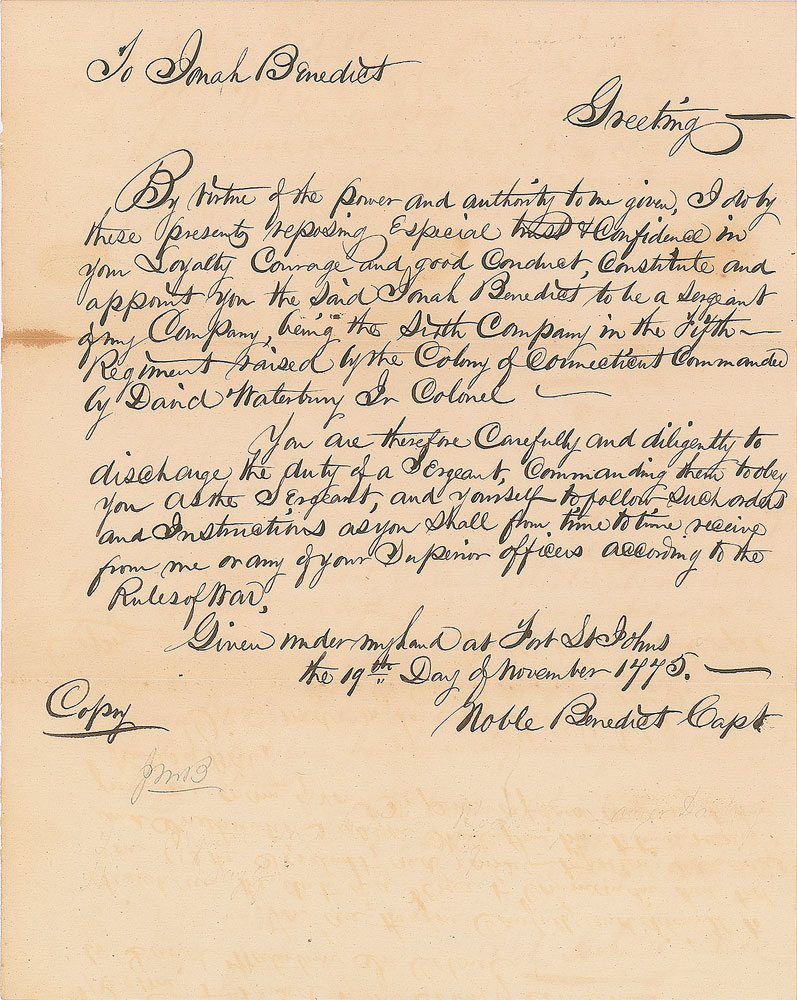 To Jonah Benedict
Greeting —
By virtue of the power and authority to me given, I do by
these presents reposing Especial trust & Confidence in
your Loyalty Courage and good Conduct, Constitute and
appoint you the said Jonah Benedict to be a Sergeant
of my Company, being the Sixth Company in the Fifth —
Regiment raised by the Colony of Connecticut Commanded
by David Waterbury Jr Colonel —
You are therefore Carefully and diligently to
discharge the duty of a Sergeant, Commanding them to obey
you as the Sergeant, and yourself to follow such orders
and Instructions as you shall from time to time receive
from me or any of your Superior officers according to the
Rules of War,
Given under my hand at Fort St Johns
the 19th Day of November 1775. —
Noble Benedict Capt
Copy